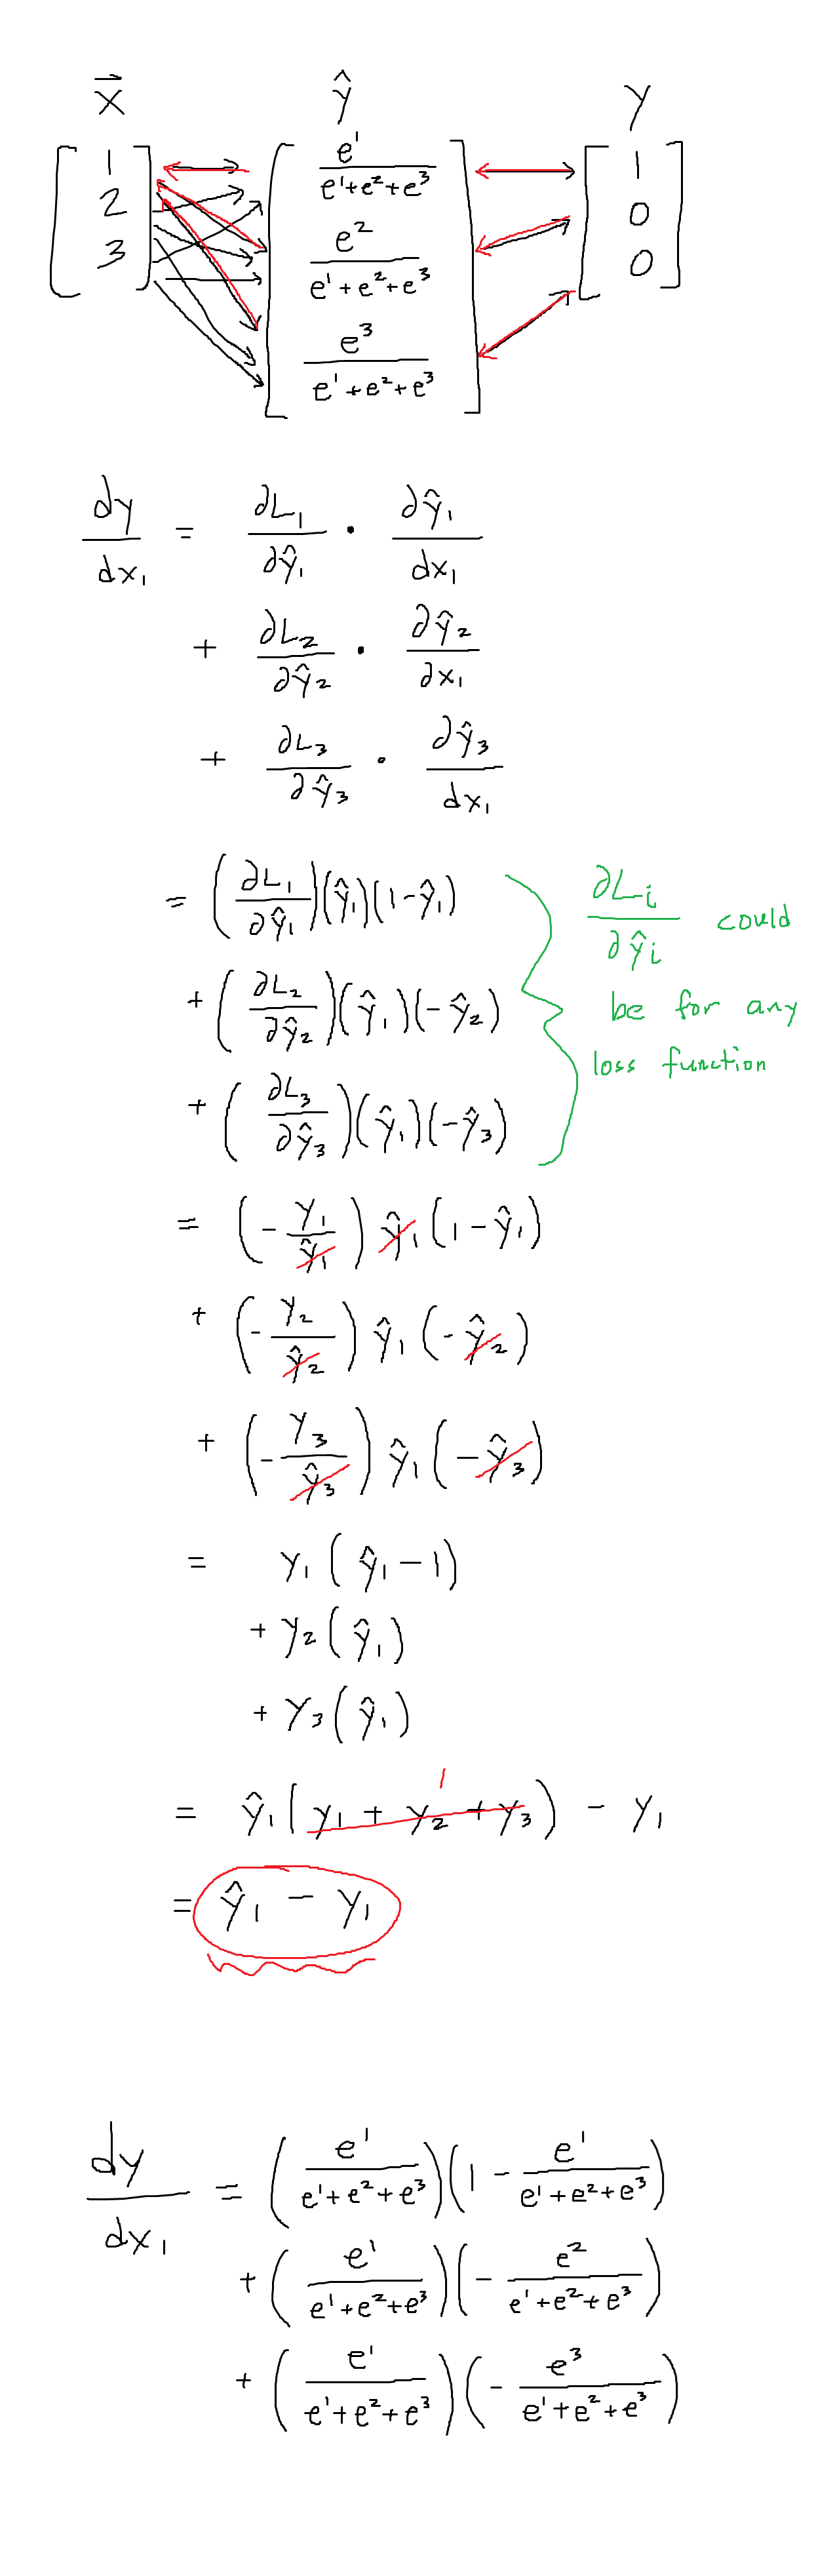 x⃗ ŷ y
[1 2 3] [e¹/(e¹+e²+e³) e²/(e¹+e²+e³) e³/(e¹+e²+e³)] [1 0 0]
dy/dx₁ = ∂L₁/∂ŷ₁ · ∂ŷ₁/dx₁
+ ∂L₂/∂ŷ₂ · ∂ŷ₂/∂x₁
+ ∂L₃/∂ŷ₃ · ∂ŷ₃/dx₁
= (∂L₁/∂ŷ₁)(ŷ₁)(1-ŷ₁)
+ (∂L₂/∂ŷ₂)(ŷ₁)(-ŷ₂)
+ (∂L₃/∂ŷ₃)(ŷ₁)(-ŷ₃)
∂Lᵢ/∂ŷᵢ could
be for any
loss function
= (-y₁/ŷ₁) ŷ₁ (1-ŷ₁)
+ (-y₂/ŷ₂) ŷ₁ (-ŷ₂)
+ (-y₃/ŷ₃) ŷ₁ (-ŷ₃)
= y₁(ŷ₁-1)
+ y₂(ŷ₁)
+ y₃(ŷ₁)
1
= ŷ₁(y₁ + y₂ + y₃) - y₁
= ŷ₁ - y₁
dy/dx₁ = (e¹/(e¹+e²+e³))(1 - e¹/(e¹+e²+e³))
+ (e¹/(e¹+e²+e³))(- e²/(e¹+e²+e³))
+ (e¹/(e¹+e²+e³))(- e³/(e¹+e²+e³))